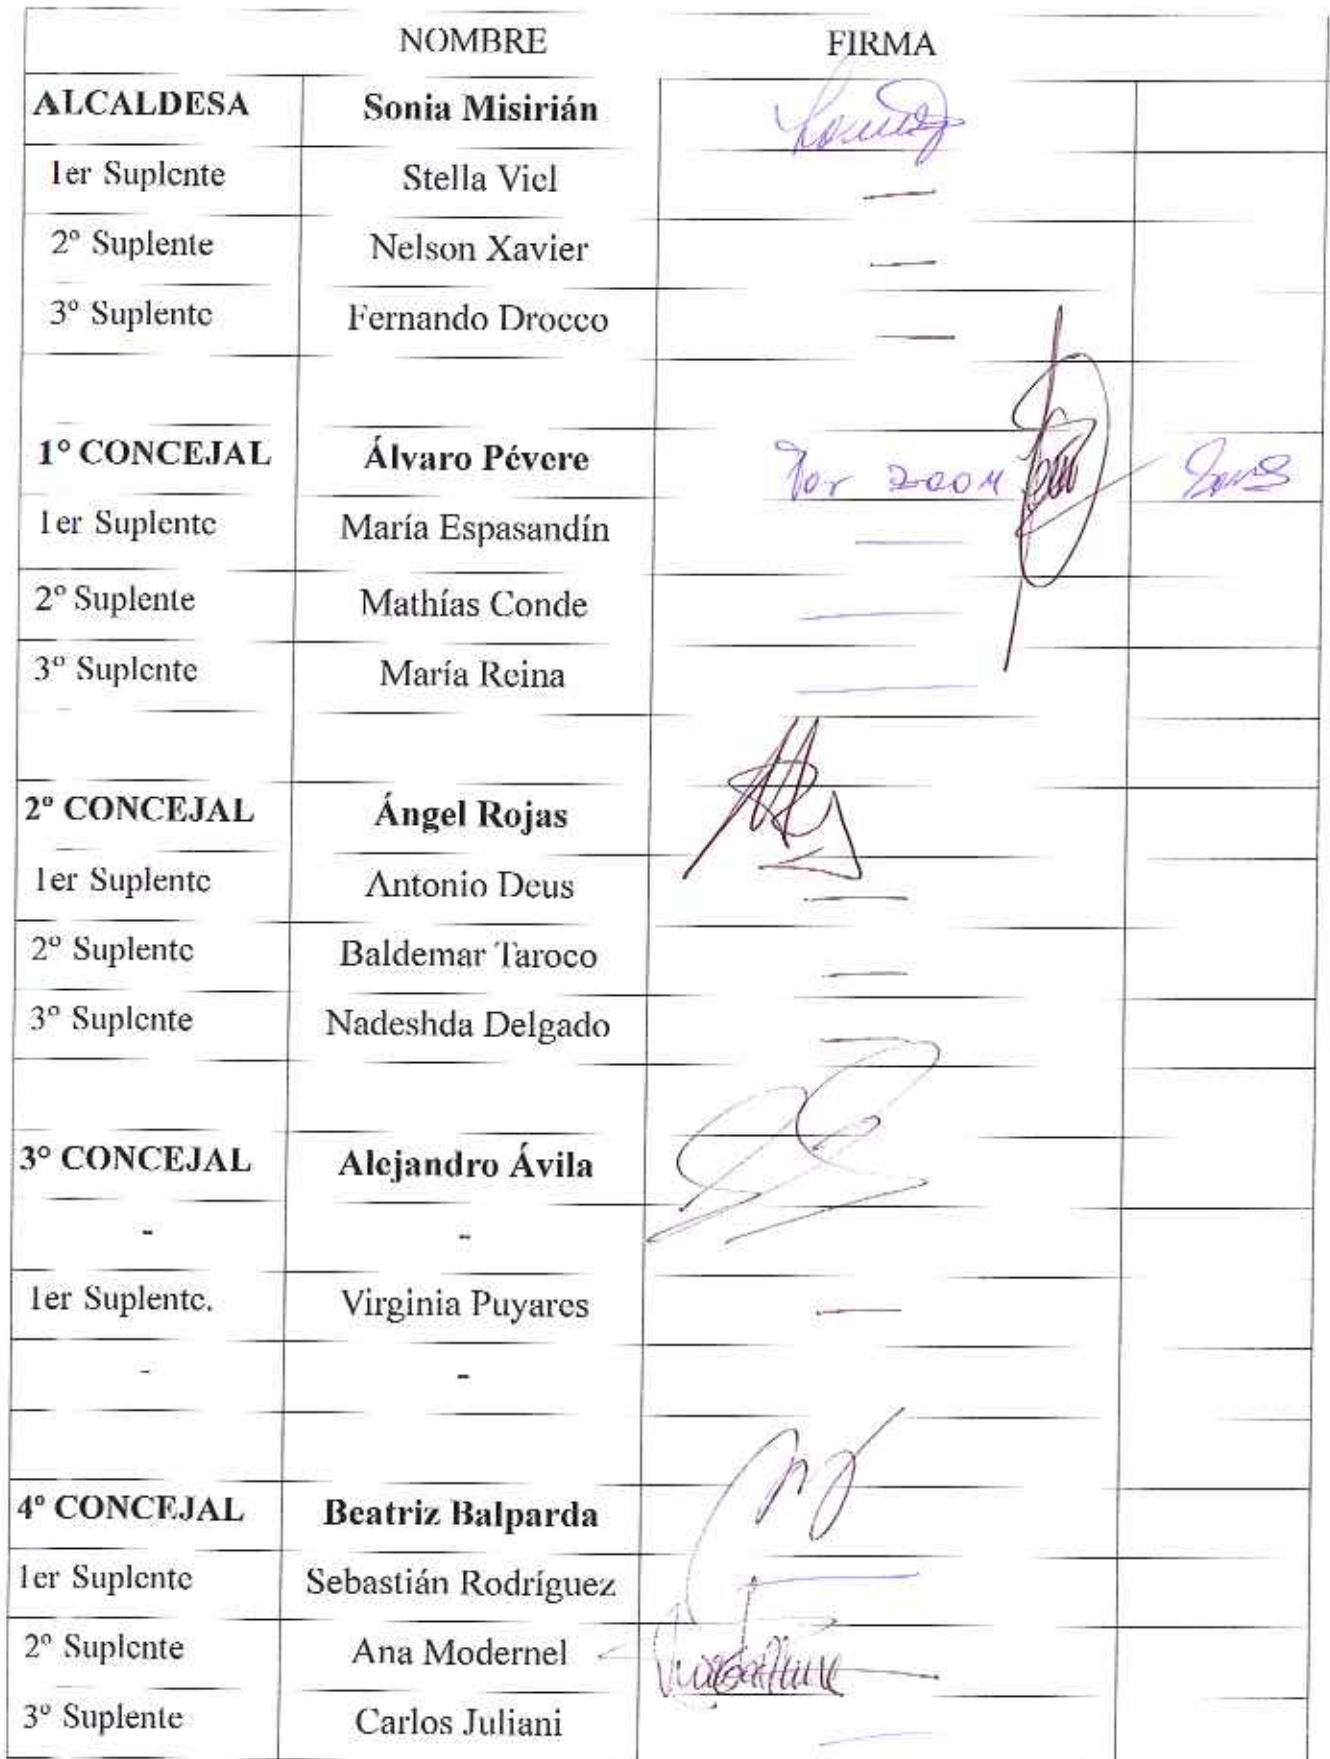 NOMBRE FIRMA
ALCALDESA Sonia Misirián
1er Suplente Stella Viel
2º Suplente Nelson Xavier
3º Suplente Fernando Drocco
1° CONCEJAL Álvaro Pévere Por ZOOM
1er Suplente María Espasandín
2º Suplente Mathías Conde
3º Suplente María Reina
2º CONCEJAL Ángel Rojas
1er Suplente Antonio Deus
2º Suplente Baldemar Taroco
3º Suplente Nadeshda Delgado
3° CONCEJAL Alejandro Ávila
- -
1er Suplente. Virginia Puyares
- -
4º CONCEJAL Beatriz Balparda
1er Suplente Sebastián Rodríguez
2º Suplente Ana Modernel
3º Suplente Carlos Juliani